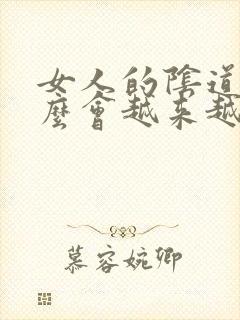 女人的陰道
麼會越来越
慕容婉卿